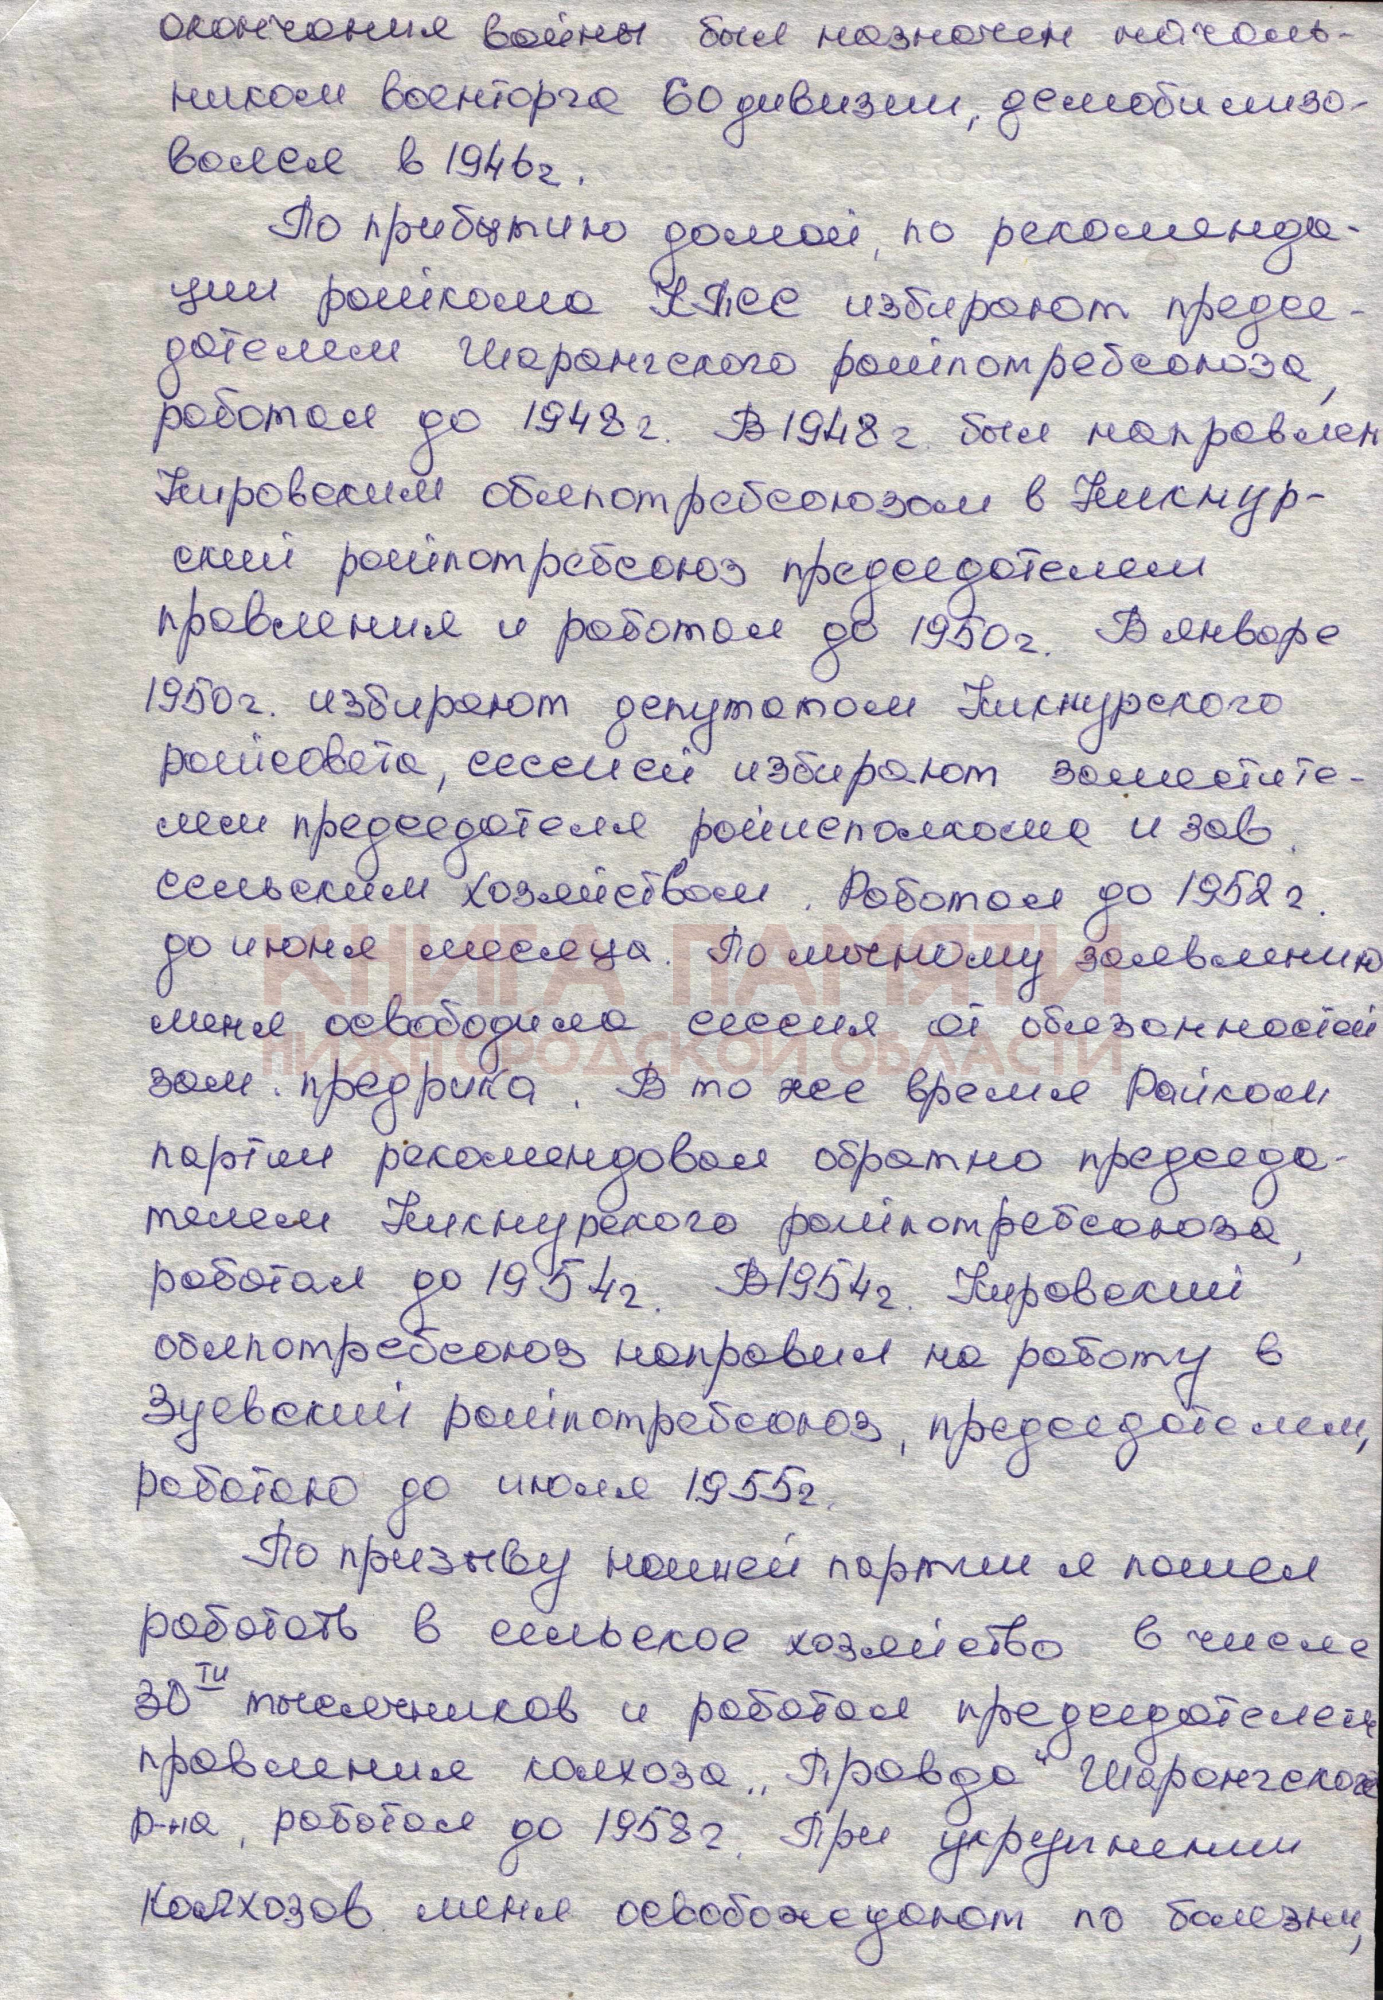 окончания войны был назначен началь-
ником военторга 60 дивизии, демобилизо-
вался в 1946г.
По прибытию домой, по рекоменда-
ции райкома КПСС избирают предсе-
дателем Шарангского райпотребсоюза,
работал до 1948г. В 1948г. был направлен
Кировским облпотребсоюзом в Кикнур-
ский райпотребсоюз председателем
правления и работал до 1950г. В январе
1950г. избирают депутатом Кикнурского
райсовета, сессией избирают заместите-
лем председателя райисполкома и зав.
сельским хозяйством. Работал до 1952г.
до июня месяца. По личному заявлению
КНИГА ПАМЯТИ
меня освободила сессия от обязанностей
НИЖНГОРОДСКОЙ ОБЛАСТИ
зам. предрика. В то же время Райком
партии рекомендовал обратно председа-
телем Кикнурского райпотребсоюза,
работал до 1954г. В 1954г. Кировский
облпотребсоюз направил на работу в
Зуевский райпотребсоюз, председателем,
работаю до июля 1955г.
По призыву нашей партии я пошел
работать в сельское хозяйство в числе
30ти тысячников и работал председателем
правления колхоза „Правда" Шарангского
р-на, работал до 1958г. При укрупнении
колхозов меня освобождают по болезни,